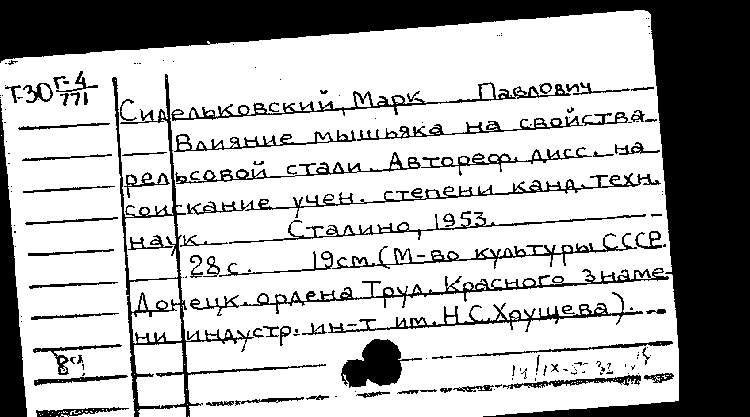 Т-30 Г-4/771
Сидельковский, Марк Павлович
Влияние мышьяка на свойства
рельсовой стали. Автореф. дисс. на
соискание учен. степени канд. техн.
наук. Сталино, 1953.
28 с. 19 см. (М-во культуры СССР.
Донецк. ордена Труд. Красного Знаме-
ни индустр. ин-т им. Н.С. Хрущева).